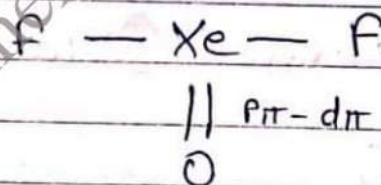 F — Xe — F
|| Pπ - dπ
O